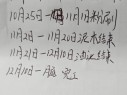 10月25日—11月1日粉刷
11月2日—11月20日泥木结束
11月21日—12月10日油漆结束
12月10日—月底 完工